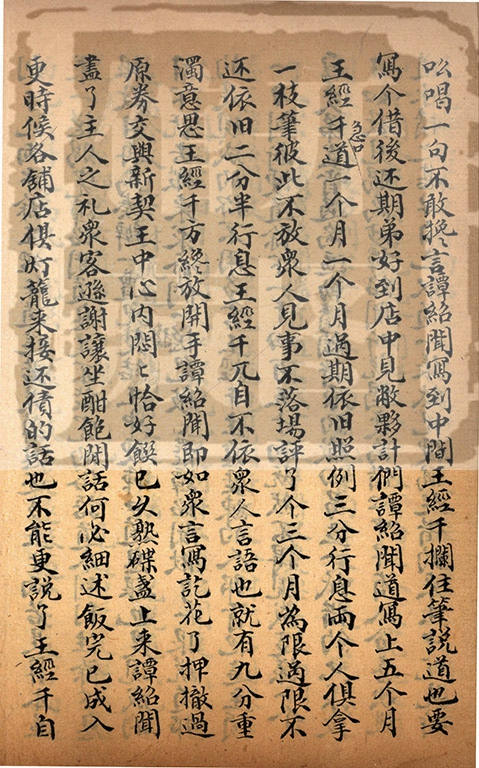 吆唱一句不敢搀言譚紹聞寫到中間王經千攔住筆説道也要
寫个借後还期弟好到店中見敝夥計們譚紹聞道寫上五个月
王經千道急口一个月一个月過期依旧照例三分行息両个人俱拿
一枝筆彼此不放衆人見事不落場評了个三个月為限過限不
还依旧二分半行息王經千兀自不依衆人言語也就有九分重
濁意思王經千方終放開手譚紹聞即如衆言寫訖花了押撤過
原券交與新契王中心内悶〻恰好饌已久熟碟盞上来譚紹聞
盡了主人之礼衆客遜謝讓坐酣飽閒話何必細述飯完已成入
更時候各舖店俱灯籠来接还債的話也不能更説了王經千自